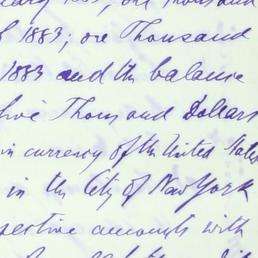 1883, one Thousand
of 1883; one Thousand
1883 and the balance
five Thousand Dollars
in currency of the United States
in the City of New York
pective amounts with